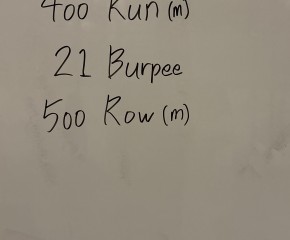 400 Run (m)
21 Burpee
500 Row (m)